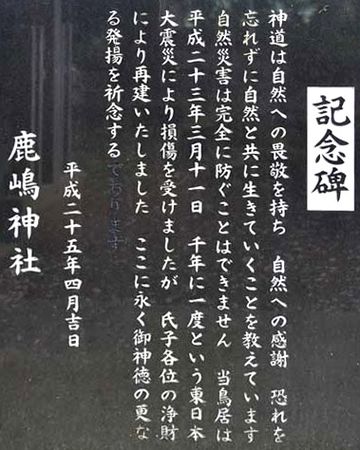 記念碑
神道は自然への畏敬を持ち　自然への感謝　恐れを
忘れずに自然と共に生きていくことを教えています
自然災害は完全に防ぐことはできません　当鳥居は
平成二十三年三月十一日　千年に一度という東日本
大震災により損傷を受けましたが　氏子各位の浄財
により再建いたしました　ここに永く御神徳の更な
る発揚を祈念するでおります
平成二十五年四月吉日
鹿嶋神社